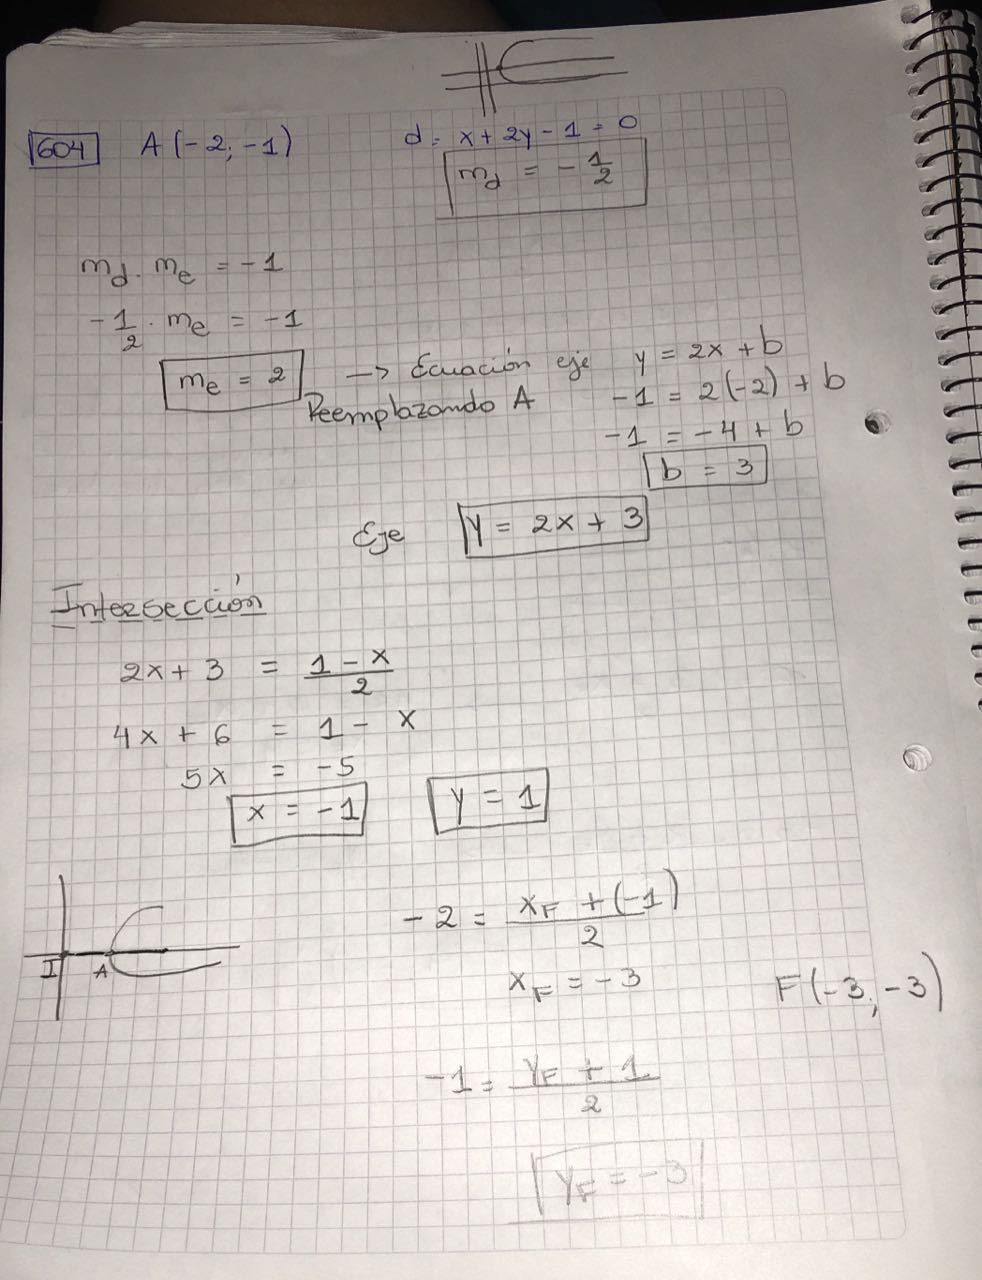 604 A (-2; -1) d = x + 2y - 1 = 0
m_d = -1/2
m_d . m_e = -1
-1/2 . m_e = -1
m_e = 2 → Ecuación eje y = 2x + b
Reemplazando A -1 = 2(-2) + b
-1 = -4 + b
b = 3
Eje y = 2x + 3
Intersección
2x + 3 = (1 - x)/2
4x + 6 = 1 - x
5x = -5
x = -1 y = 1
I A
-2 = (x_F + (-1))/2
x_F = -3 F(-3; -3)
-1 = (y_F + 1)/2
y_F = -3